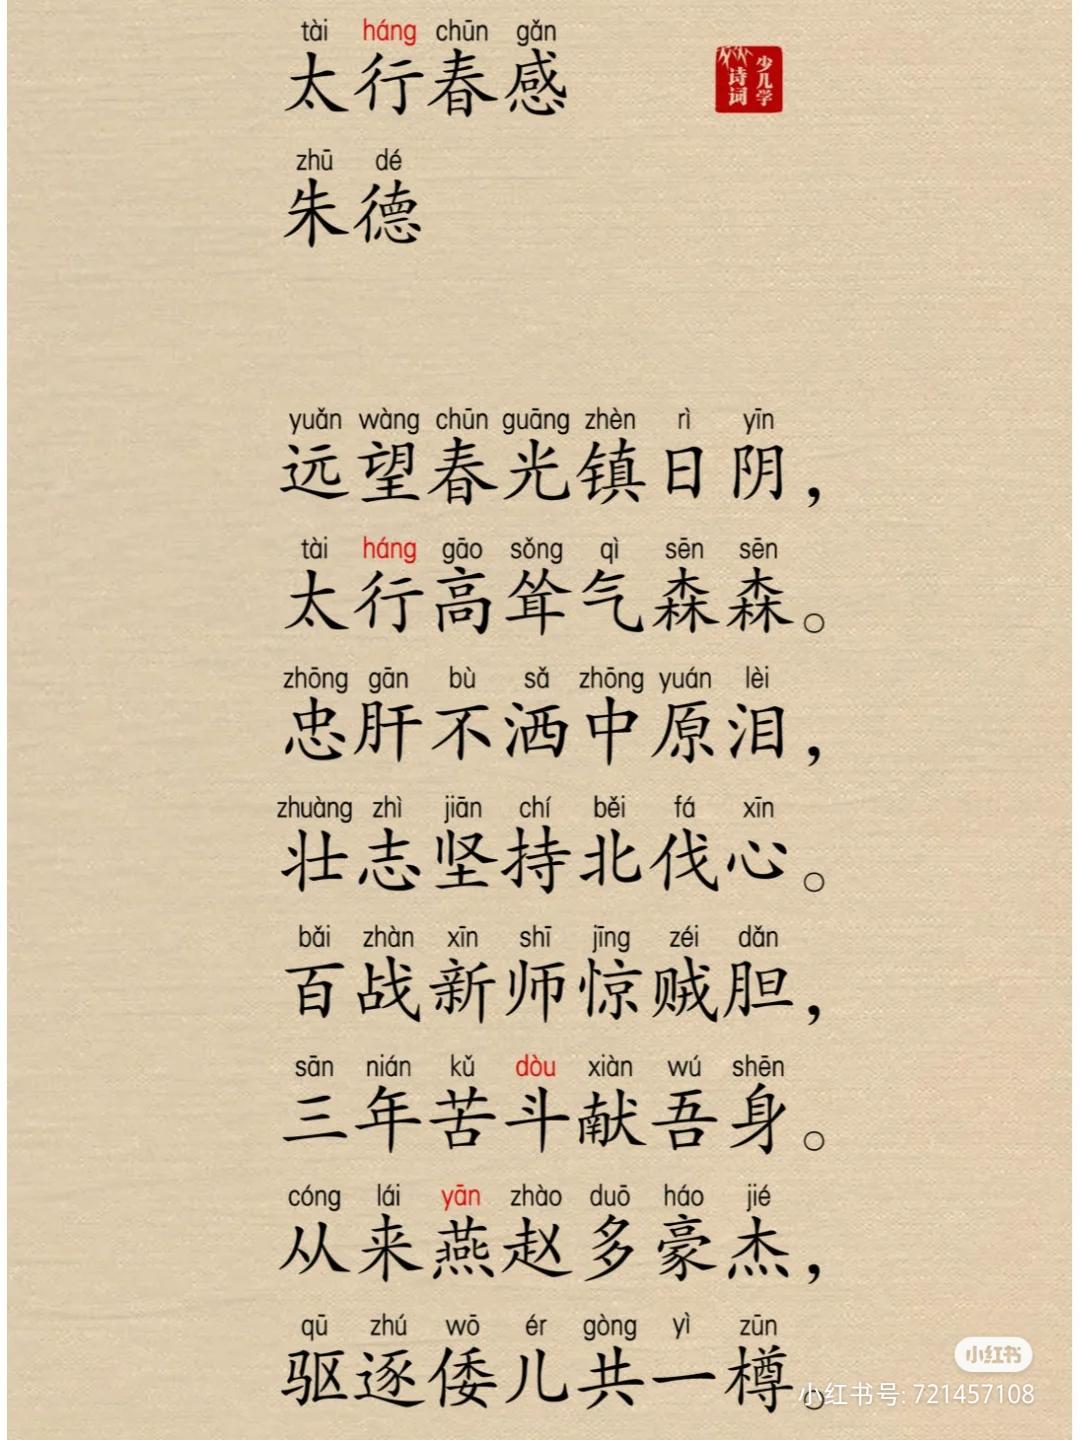 tài háng chūn gǎn
太行春感
少儿学
诗词
zhū dé
朱德
yuǎn wàng chūn guāng zhèn rì yīn
远望春光镇日阴，
tài háng gāo sǒng qì sēn sēn
太行高耸气森森。
zhōng gān bù sǎ zhōng yuán lèi
忠肝不洒中原泪，
zhuàng zhì jiān chí běi fá xīn
壮志坚持北伐心。
bǎi zhàn xīn shī jīng zéi dǎn
百战新师惊贼胆，
sān nián kǔ dòu xiàn wú shēn
三年苦斗献吾身。
cóng lái yān zhào duō háo jié
从来燕赵多豪杰，
qū zhú wō ér gòng yì zūn
驱逐倭儿共一樽。
小红书
小红书号: 721457108